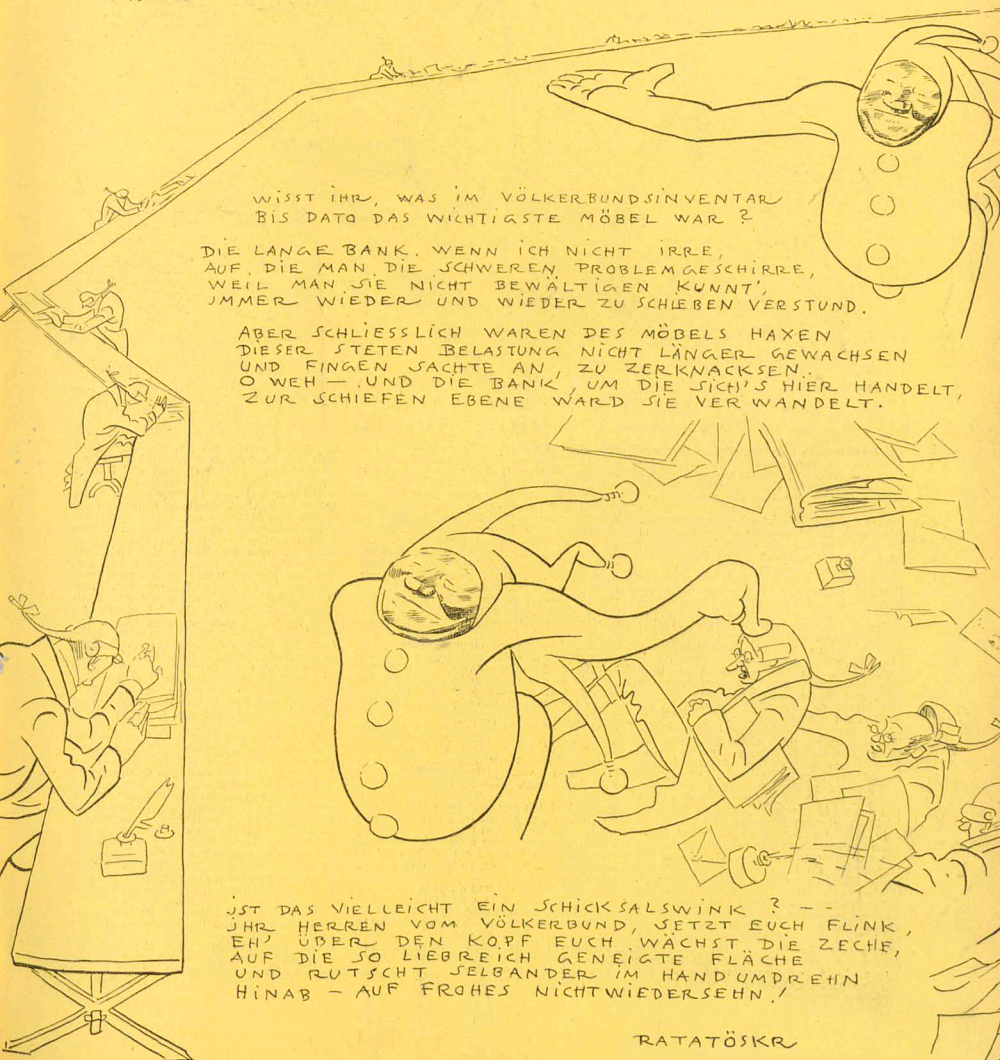 WISST IHR, WAS IM VÖLKERBUNDSINVENTAR
BIS DATO DAS WICHTIGSTE MÖBEL WAR?
DIE LANGE BANK. WENN ICH NICHT IRRE,
AUF DIE MAN DIE SCHWEREN PROBLEMGESCHIRRE,
WEIL MAN SIE NICHT BEWÄLTIGEN KUNNT',
IMMER WIEDER UND WIEDER ZU SCHIEBEN VERSTUND.
ABER SCHLIESSLICH WAREN DES MÖBELS HAXEN
DIESER STETEN BELASTUNG NICHT LÄNGER GEWACHSEN
UND FINGEN SACHTE AN, ZU ZERKNACKSEN.
O WEH — UND DIE BANK, UM DIE SICH'S HIER HANDELT,
ZUR SCHIEFEN EBENE WARD SIE VERWANDELT.
IST DAS VIELLEICHT EIN SCHICKSALSWINK? --
IHR HERREN VOM VÖLKERBUND, SETZT EUCH FLINK,
EH' ÜBER DEN KOPF EUCH WÄCHST DIE ZECHE,
AUF DIE SO LIEBREICH GENEIGTE FLÄCHE
UND RUTSCHT SELBANDER IM HANDUMDREHN
HINAB — AUF FROHES NICHTWIEDERSEHN!
RATATÖSKR